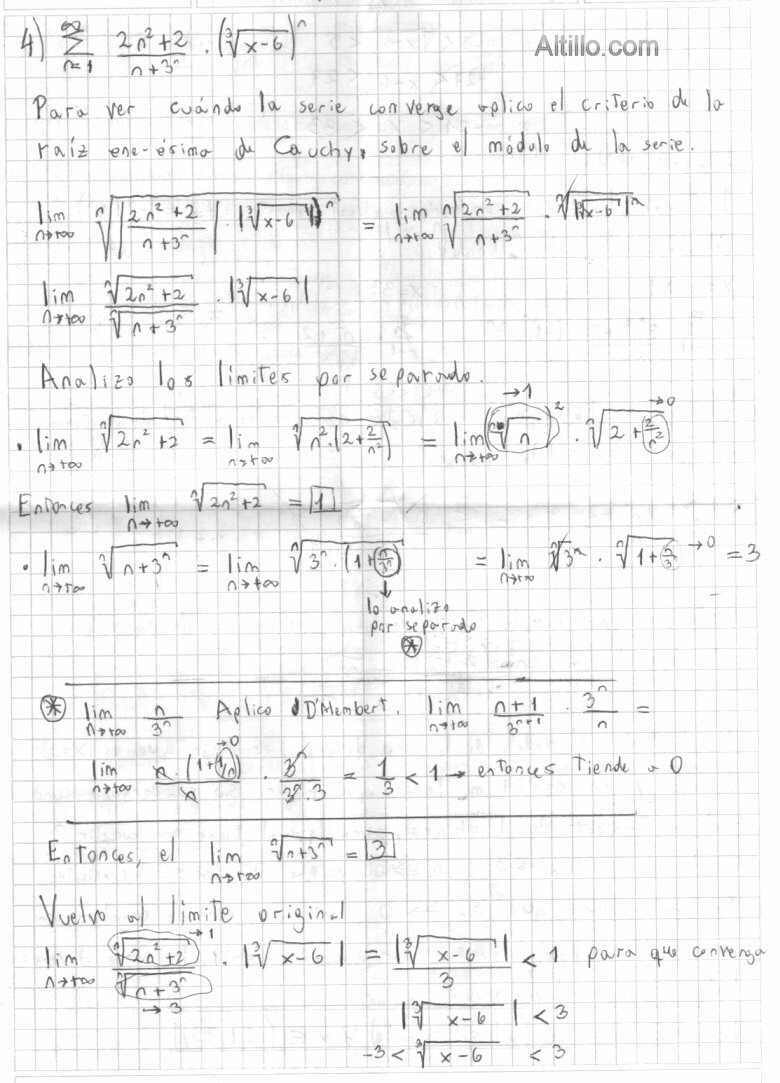 4) ∞ Σ n=1 (2n²+2)/(n+3ⁿ) · (∛(x-6))ⁿ
Altillo.com
Para ver cuándo la serie converge aplico el criterio de la
raíz ene-ésima de Cauchy, sobre el módulo de la serie.
lim n→+∞ ⁿ√(|(2n²+2)/(n+3ⁿ)| · |∛(x-6)|ⁿ) = lim n→+∞ ⁿ√((2n²+2)/(n+3ⁿ)) · ⁿ√(|∛(x-6)|ⁿ)
lim n→+∞ ⁿ√(2n²+2)/ⁿ√(n+3ⁿ) · |∛(x-6)|
Analizo los límites por separado.
• lim n→+∞ ⁿ√(2n²+2) = lim n→+∞ ⁿ√(n²·(2+2/n²)) = lim n→+∞ (ⁿ√n)² →1 · ⁿ√(2+2/n²) →0
Entonces lim n→+∞ ⁿ√(2n²+2) = 1
• lim n→+∞ ⁿ√(n+3ⁿ) = lim n→+∞ ⁿ√(3ⁿ·(1+n/3ⁿ)) = lim n→+∞ ⁿ√3ⁿ · ⁿ√(1+n/3ⁿ) →0 = 3
↓
lo analizo
por separado
*
* lim n→+∞ n/3ⁿ Aplico D'Alembert. lim n→+∞ (n+1)/3ⁿ⁺¹ · 3ⁿ/n =
lim n→+∞ n·(1+1/n)/n →0 · 3ⁿ/(3ⁿ·3) = 1/3 < 1 → entonces tiende a 0
Entonces, el lim n→+∞ ⁿ√(n+3ⁿ) = 3
Vuelvo al límite original
lim n→+∞ ⁿ√(2n²+2) →1 / ⁿ√(n+3ⁿ) →3 · |∛(x-6)| = |∛(x-6)|/3 < 1 para que converga
|∛(x-6)| < 3
-3 < ∛(x-6) < 3